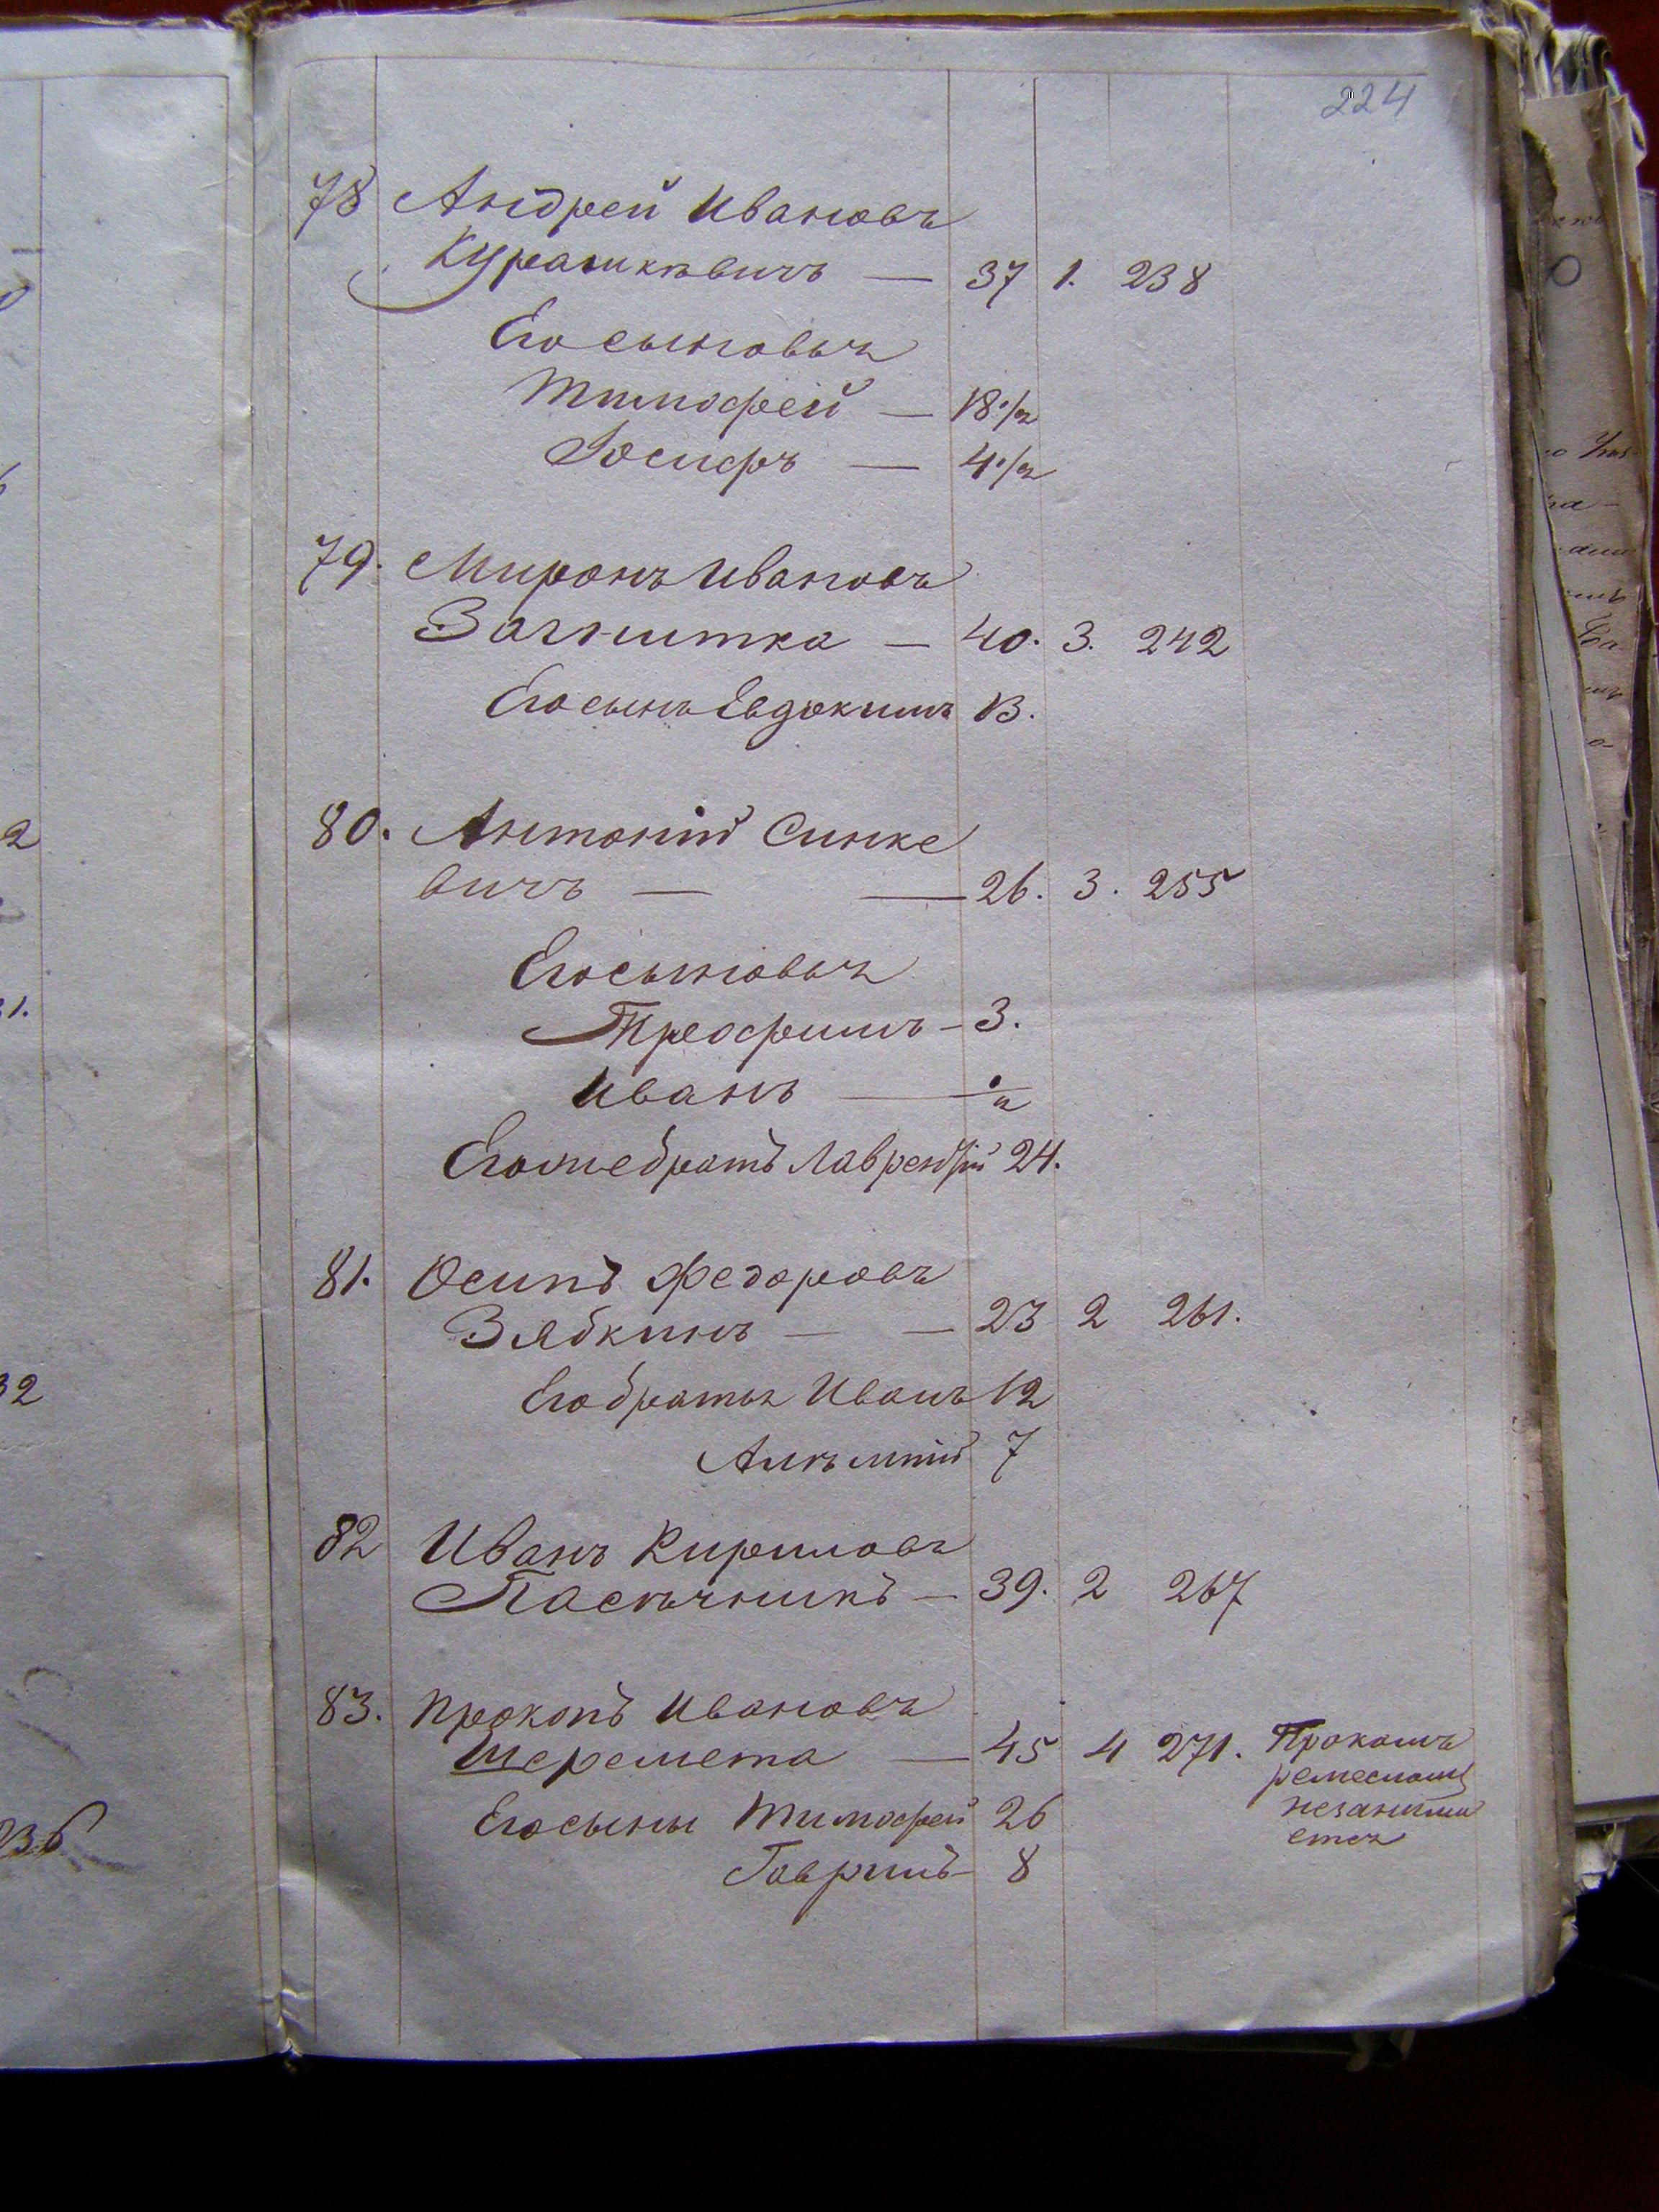 224
78 Андрей Ивановъ
Курашкевичъ — 37 1. 238
Его сыновья
Тимофей — 18 1/2
Іосифъ — 4 1/2
79. Миронъ Ивановъ
Загнитка — 40. 3. 242
Его сынъ Евдокимъ 13.
80. Антоній Синке
вичъ — — 26. 3. 255
Его сыновья
Трофимъ — 3.
Иванъ — 1/2
Его же братъ Лаврентій 24.
81. Осипъ Федоровъ
Зябкинъ — — 23 2 261.
Его братья Иванъ 12
7
82 Иванъ Кириловъ
Пасѣчникъ — 39. 2 267
83. Прокопъ Ивановъ
Шеремета — 45 4 271. Прокопъ
ремесломъ
незанима
ется
Его сыны Тимофей 26
Гаврилъ 8
2
31.
32
236